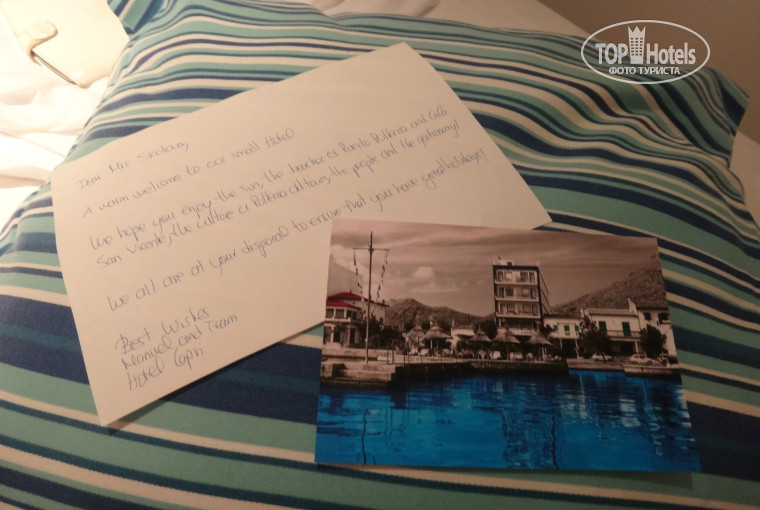 TOP Hotels
ФОТО ТУРИСТА
Dear Mrs
A warm welcome to our small Hotel
We hope you enjoy the sun, the beaches of Puerto Pollensa and Cala
San Vicente, the culture of Pollensa old town, the people and the gastronomy!
We all are at your disposal to ensure that you have great holidays!
Best Wishes
Manuel and Team
Hotel Capri